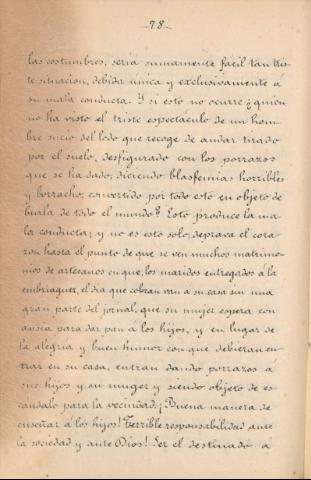 -78-
las costumbres, seria sumamente facil tan tris-
te situacion, debida única y exclusivamente á
su mala conducta. Y si esto no ocurre ¿quien
no ha visto el triste espectaculo de un hom-
bre sucio del lodo que recoge de andar tirado
por el suelo, desfigurado con los porrazos
que se ha dado, diciendo blasfemias horribles
y borracho; convertido por todo esto en objeto de
burla de todo el mundo? Esto produce la ma-
la conducta; y no es esto solo, deprava el cora-
zon hasta el punto de que se ven muchos matrimo-
nios de artesanos en que, los maridos entregados á la
embriaguez, el dia que cobran van a su casa sin una
gran parte del jornal, que su mujer espera con
ansia para dar pan á los hijos, y en lugar de
la alegria y buen humor con que debieran en-
trar en su casa, entran dando porrazos a
sus hijos y su muger y siendo objeto de es-
candalo para la vecindad. ¡Buena manera de
enseñar á los hijos! Terrible responsabilidad ante
la sociedad y ante Dios! Ser el destinado á